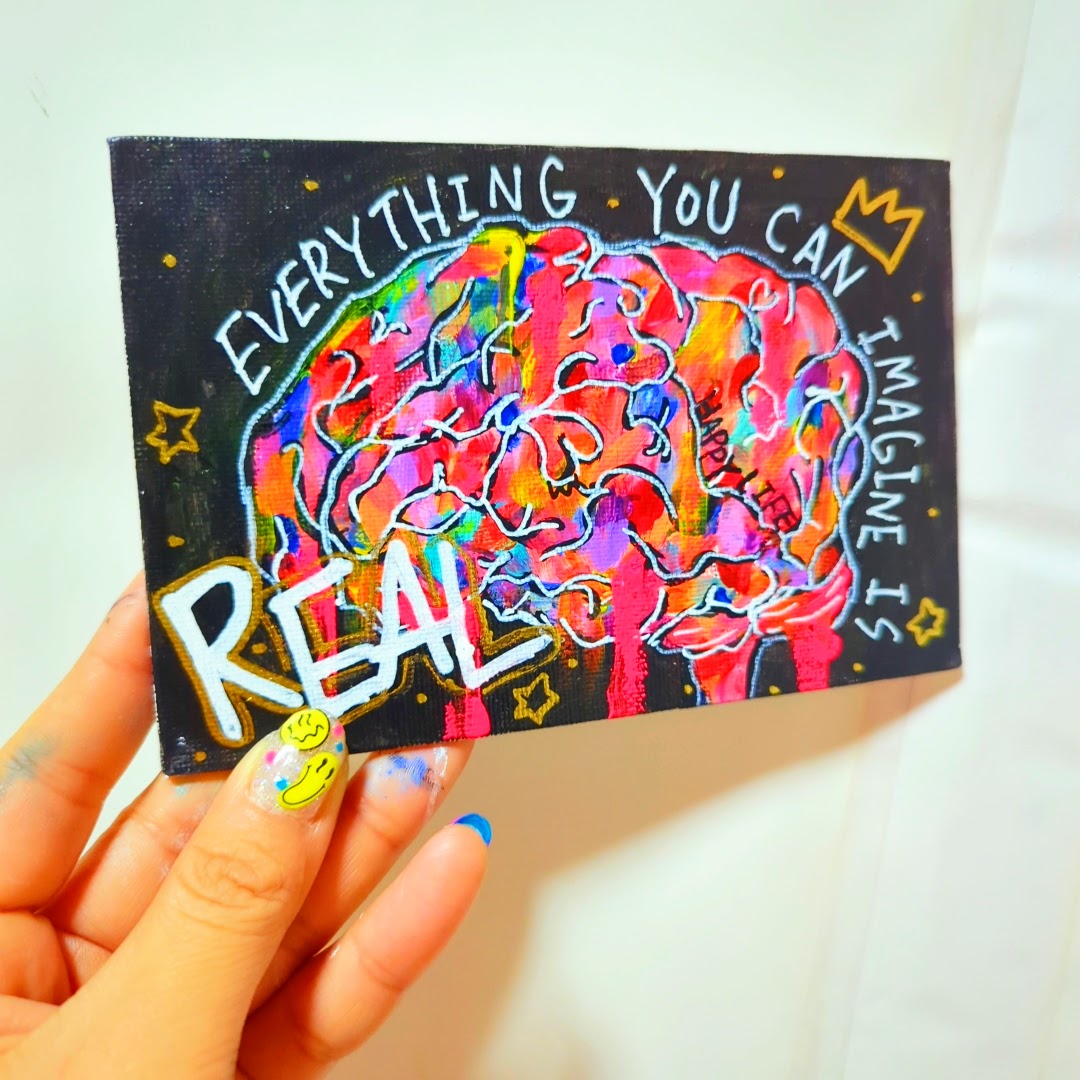 EVERYTHING YOU CAN IMAGINE IS
REAL
HAPPY LIFE